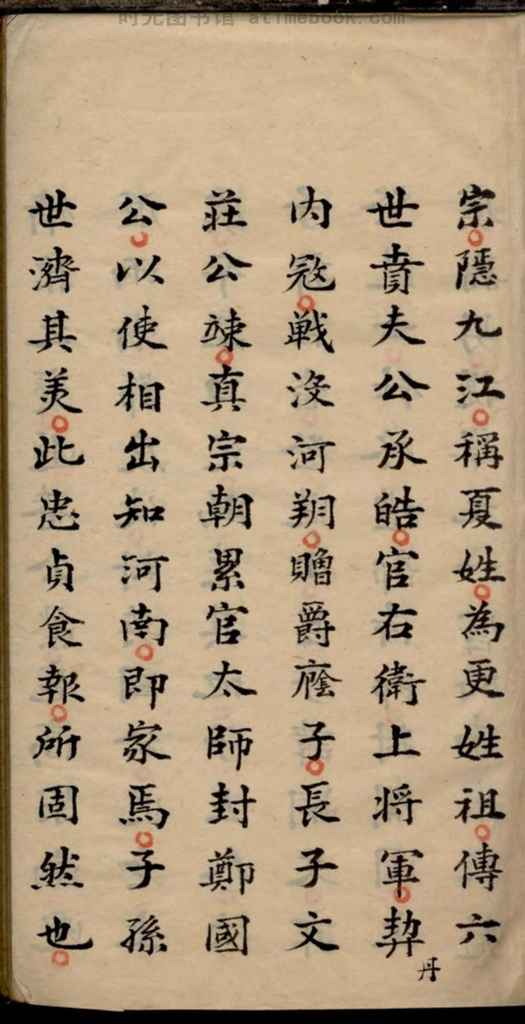 时光图书馆 atimebook.com
宗隱九江稱夏姓為更姓祖傳六
世賁夫公承皓官右衛上将軍契
丹
内冦戰沒河翔贈爵廕子長子文
莊公竦真宗朝累官太師封鄭國
公以使相出知河南即家焉子孫
世濟其美此忠貞食報所固然也